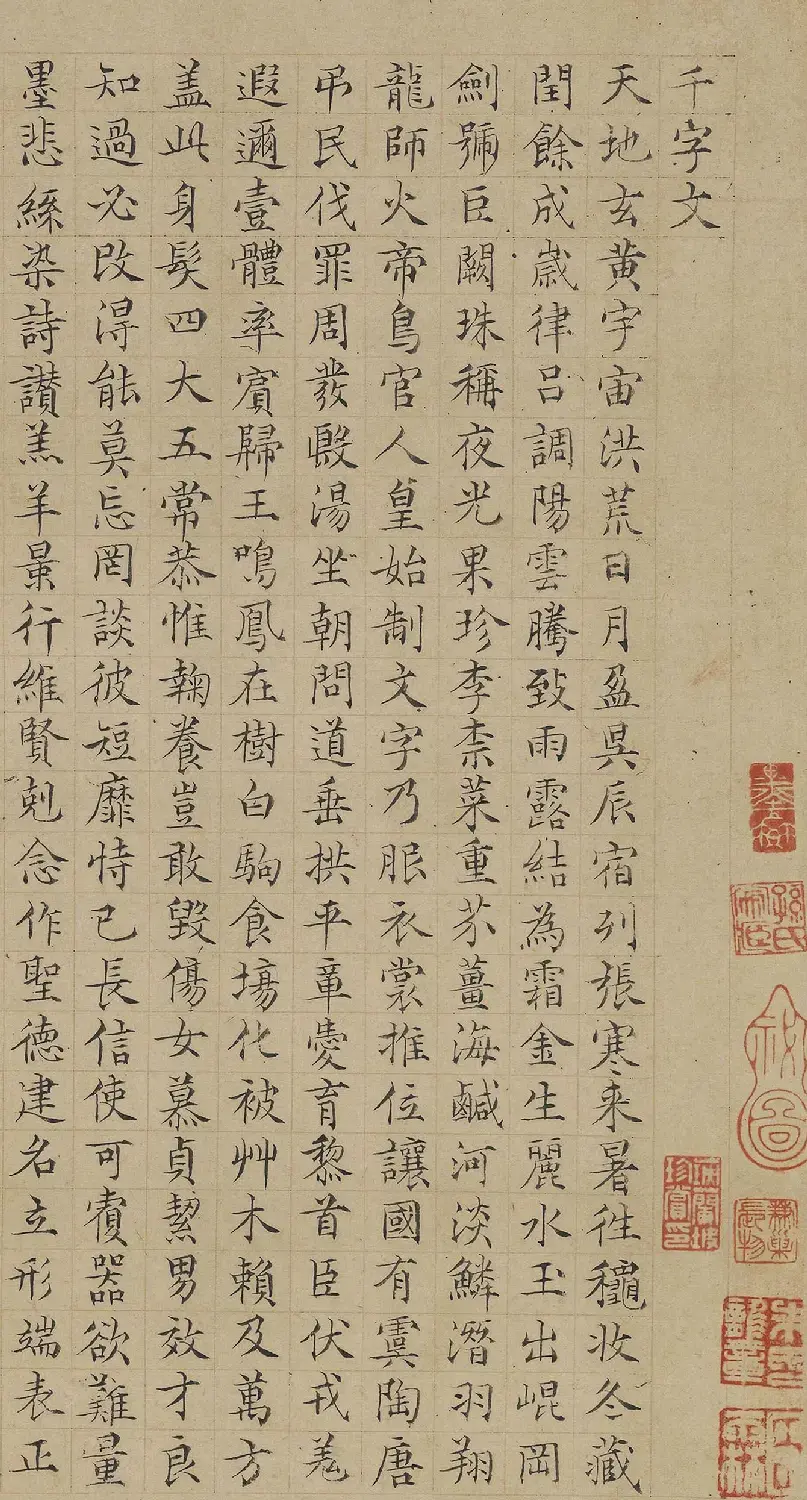 千字文
天地玄黄宇宙洪荒日月盈昃辰宿列張寒来暑往穐收冬藏
閏餘成歲律吕調陽雲騰致雨露結為霜金生麗水玉出崐岡
劍號巨闕珠稱夜光果珍李柰菜重芥薑海鹹河淡鱗潛羽翔
龍師火帝鳥官人皇始制文字乃服衣裳推位讓國有虞陶唐
吊民伐罪周發殷湯坐朝問道垂拱平章愛育黎首臣伏戎羌
遐邇壹體率賓歸王鳴鳳在樹白駒食場化被艸木賴及萬方
盖此身髮四大五常恭惟鞠養豈敢毀傷女慕貞絜男效才良
知過必改得能莫忘罔談彼短靡恃己長信使可覆器欲難量
墨悲絲染詩讚羔羊景行維賢剋念作聖德建名立形端表正